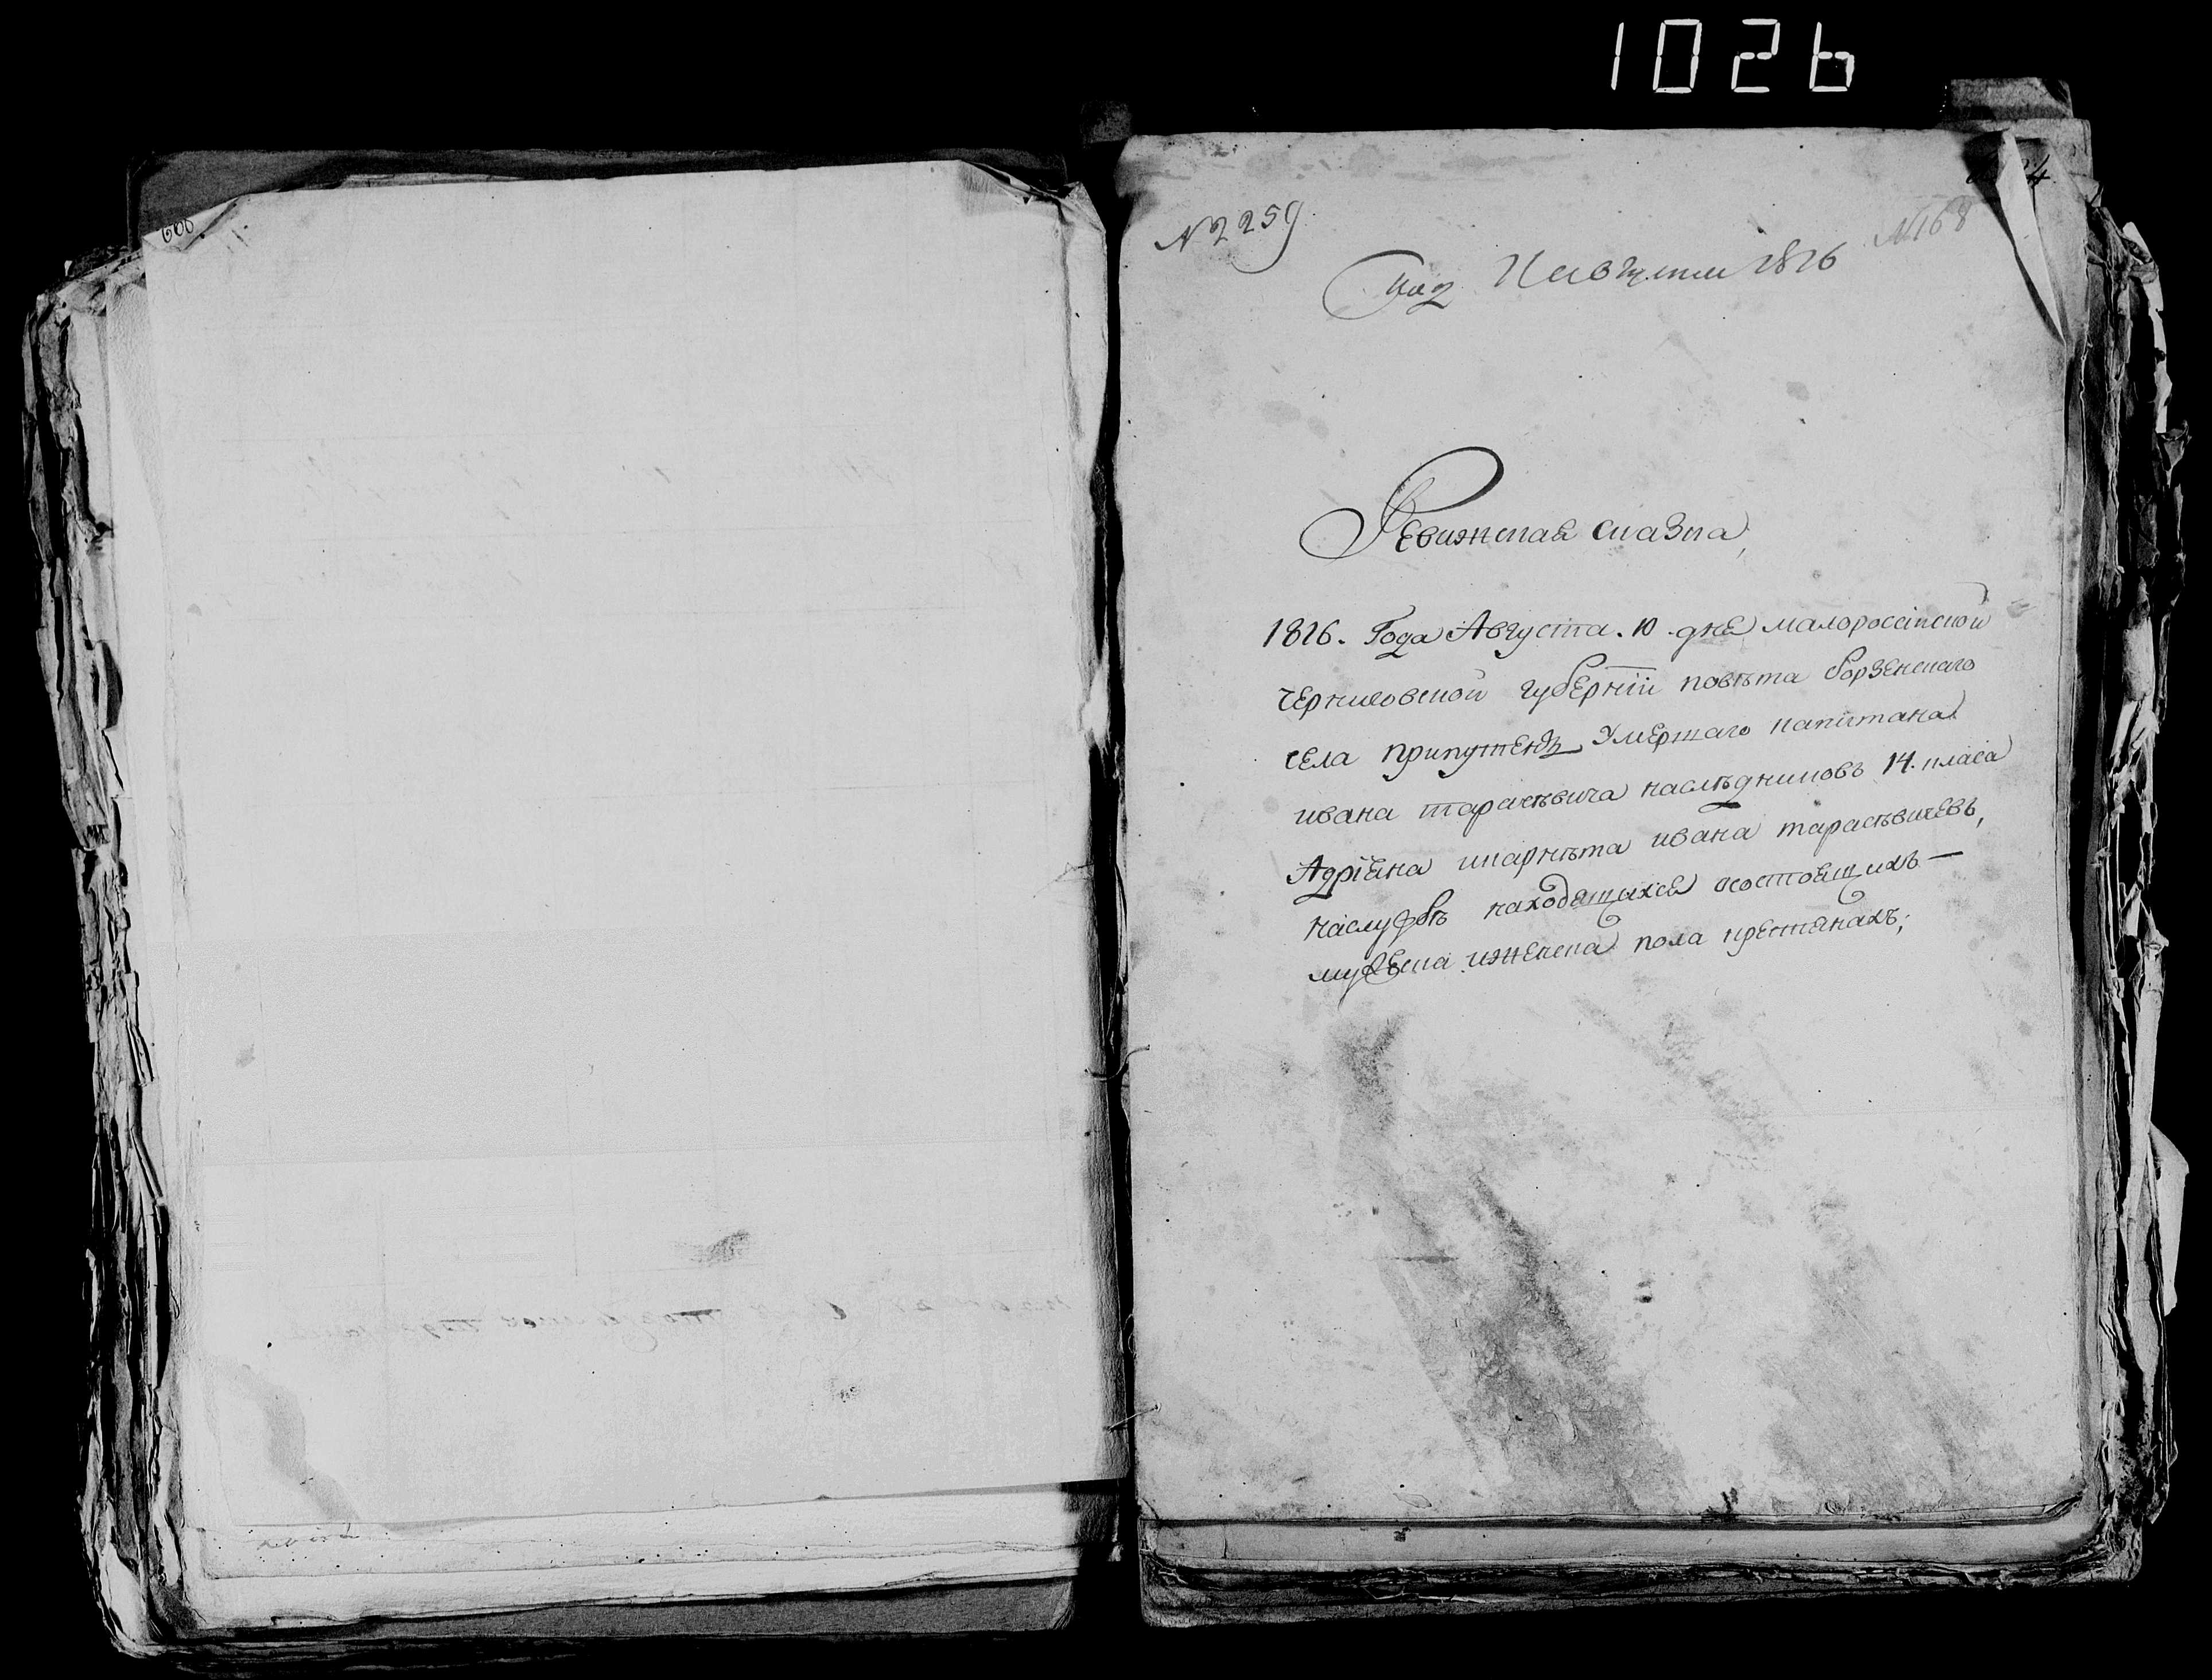 1026
606
№ 2259
№168
Августа 1816
Ревижская сказка,
1816. Года Августа. 10 дня малоросссійской
черниговской губерніи повѣта борзенскаго
села припутенъ Умершаго капитана
ивана тарасѣвича наслѣдниковъ 14. класа
Адріяна икарнѣта ивана тарасѣвичевъ,
наслужбѣ находящихся осостоящихъ —
мужеска иженска пола крестянахъ;